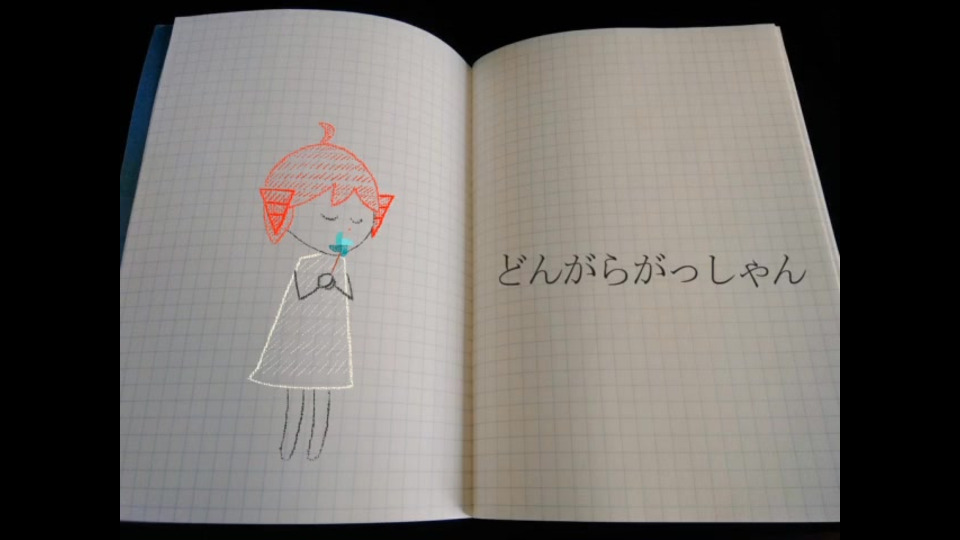 どんがらがっしゃん